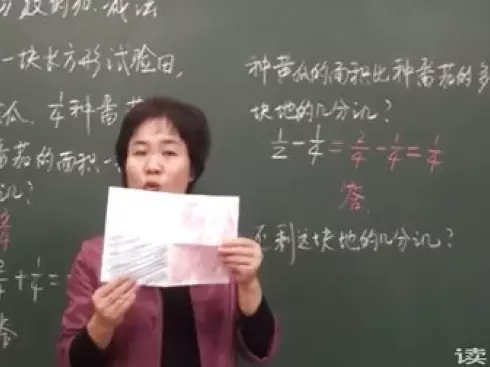 分数的加、减法
一块长方形试验田,
瓜, 1/4种番
番茄的面积一
几?
2/4+1/4=
答
种苦瓜的面积比种番茄的多
块地的几分之几?
1/2-1/4=2/4-1/4=1/4
答
还剩这块地的几分之几?
读